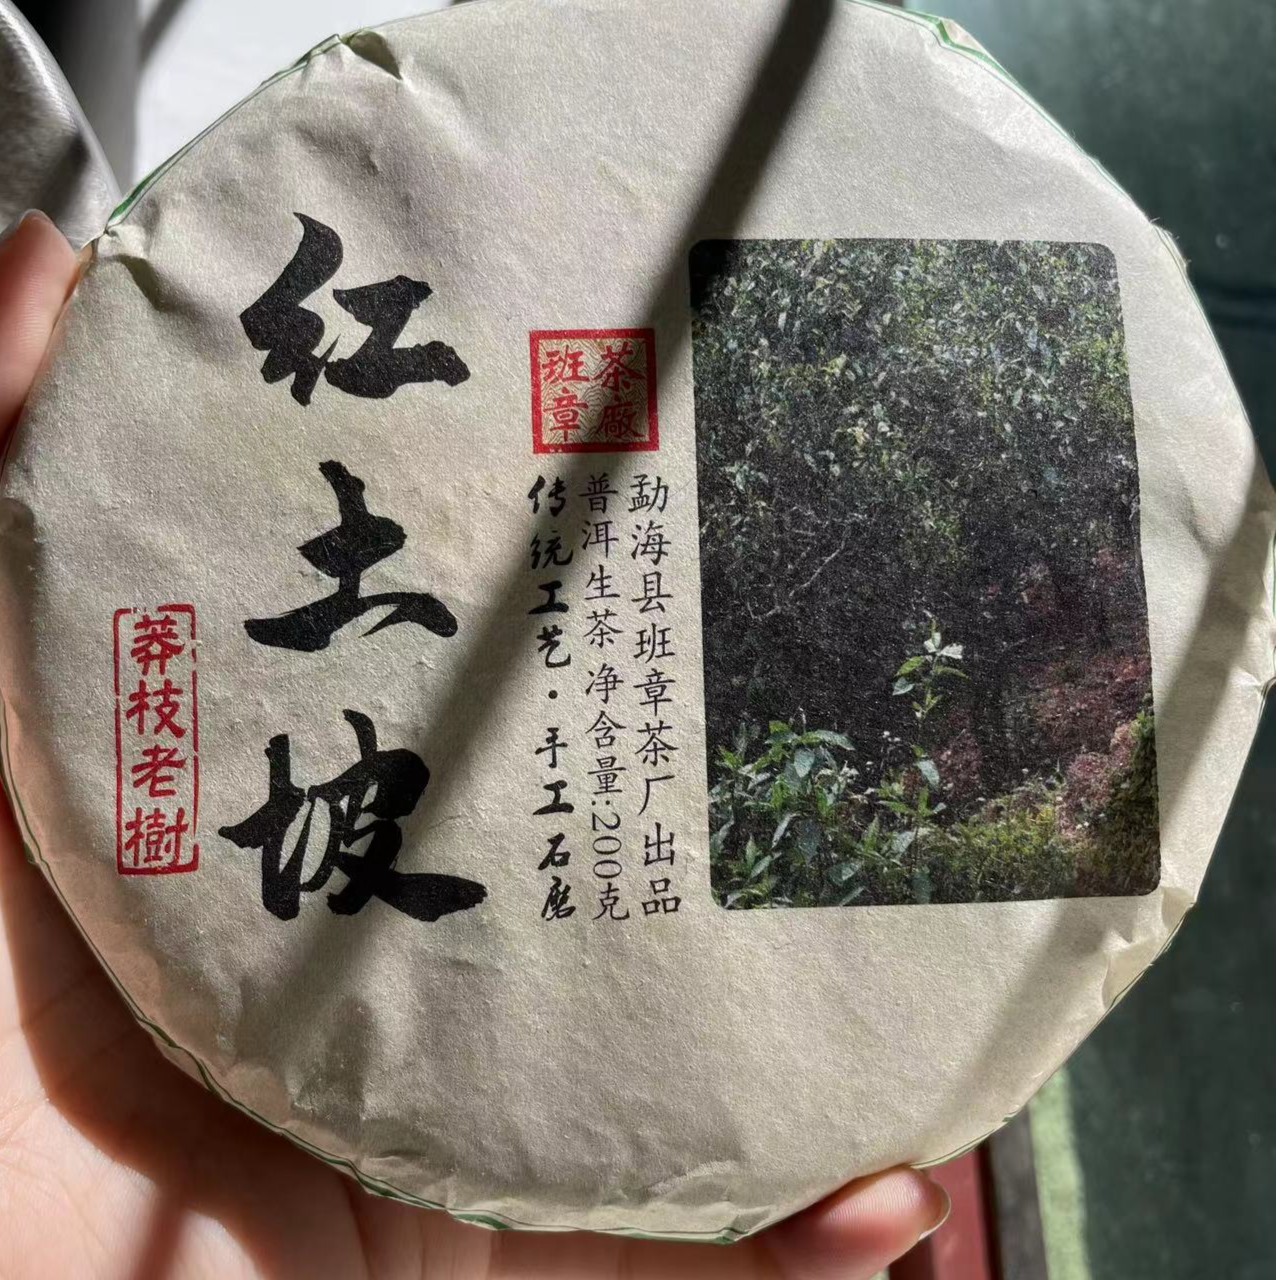 红土坡
莽枝老樹
班章茶廠
勐海县班章茶厂出品
普洱生茶 净含量:200克
传统工艺·手工石磨